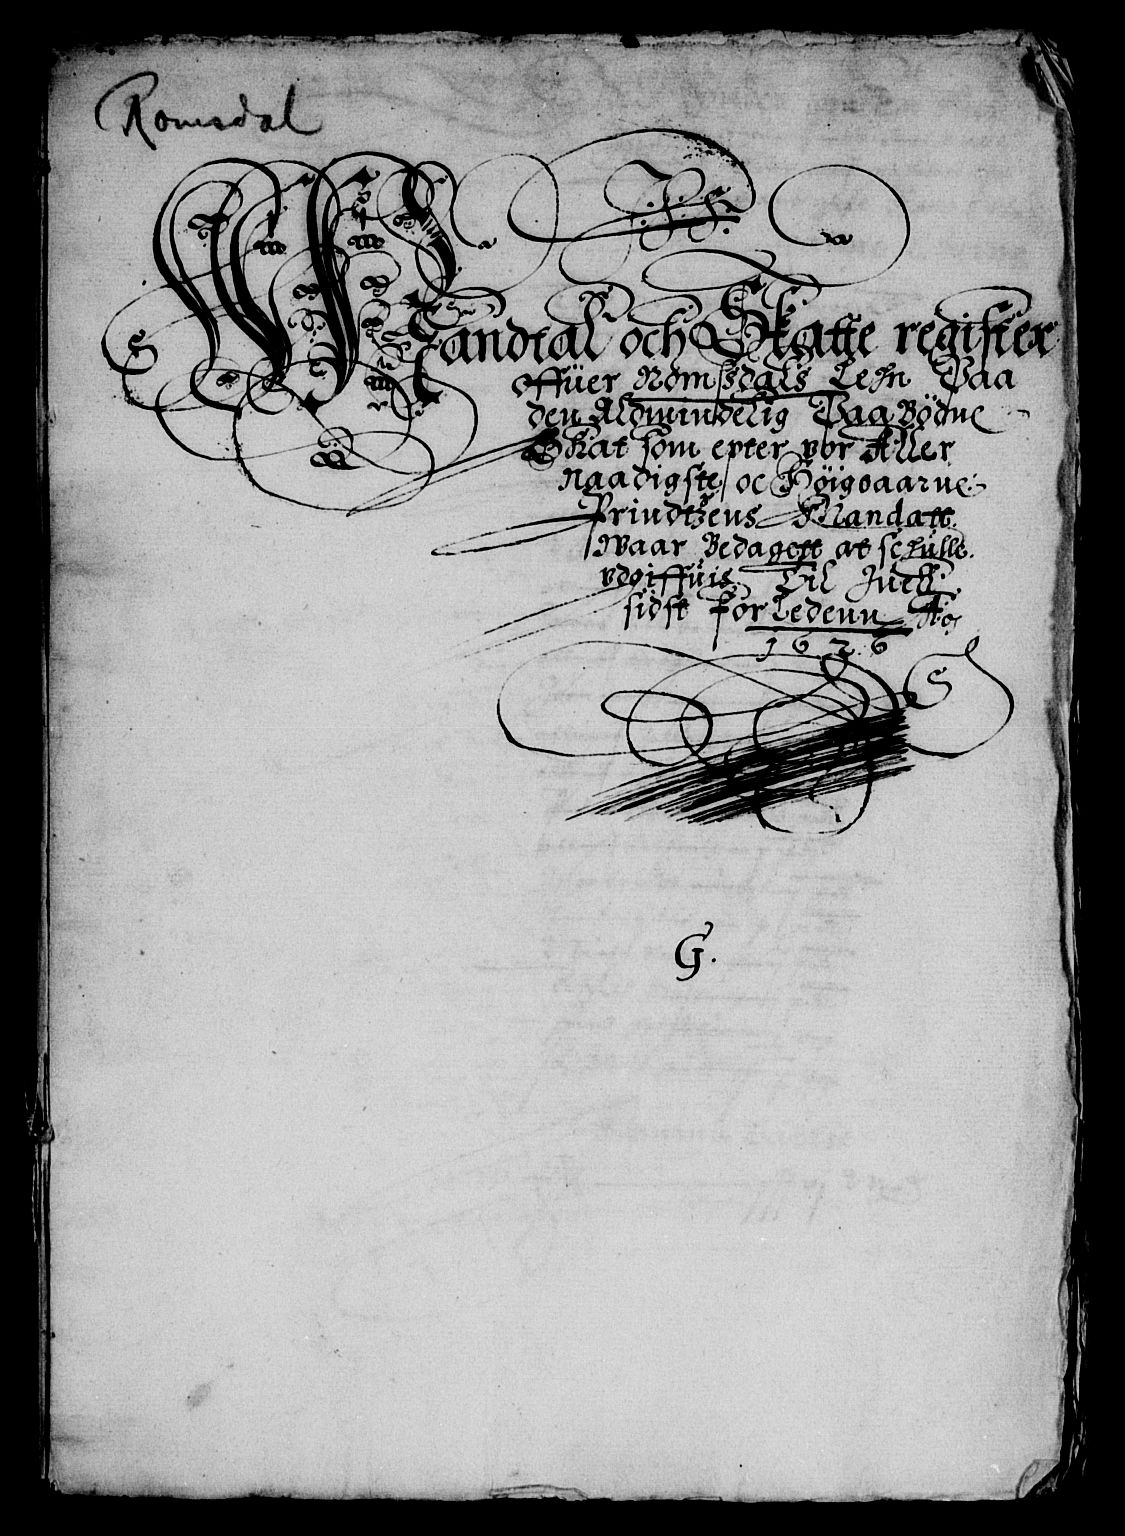 Romsdal
Mandtal och Skatte register
offüer Romssdals Lehn Paa
den Aldmindelig Paa Bödne
Skat som epter vor Aller
naadigste oc Höigbaarne
Prindtzens Mandatt
Waar Bedagett at schulle
vdgiffuis Til Juell
sidst forledenn Ao
1626
G.